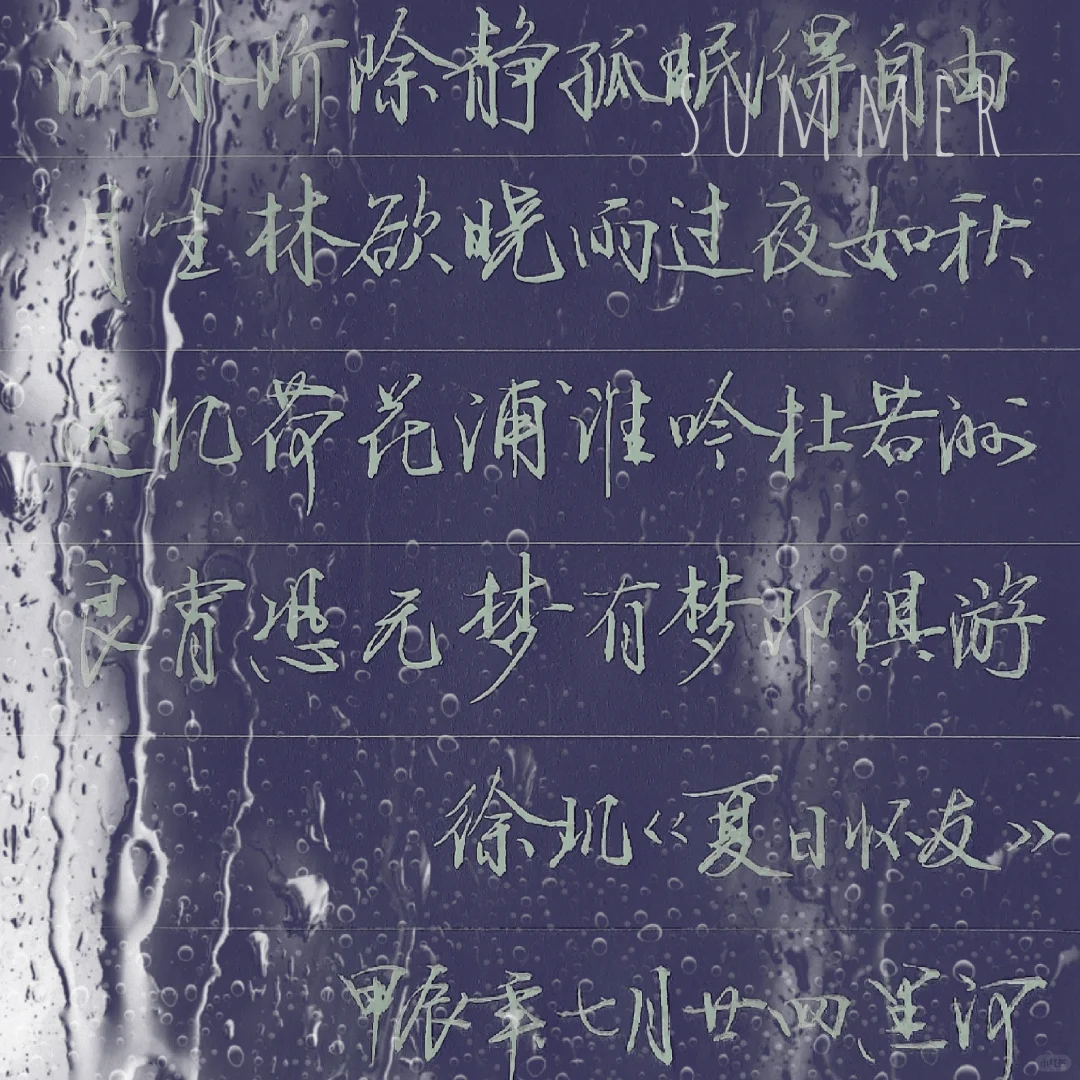 流水阶除静孤眠得自由
SUMMER
月生林欲晓雨过夜如秋
远忆荷花浦谁吟杜若洲
良宵恐无梦有梦即俱游
徐玑《夏日怀友》
甲辰年七月廿四星河